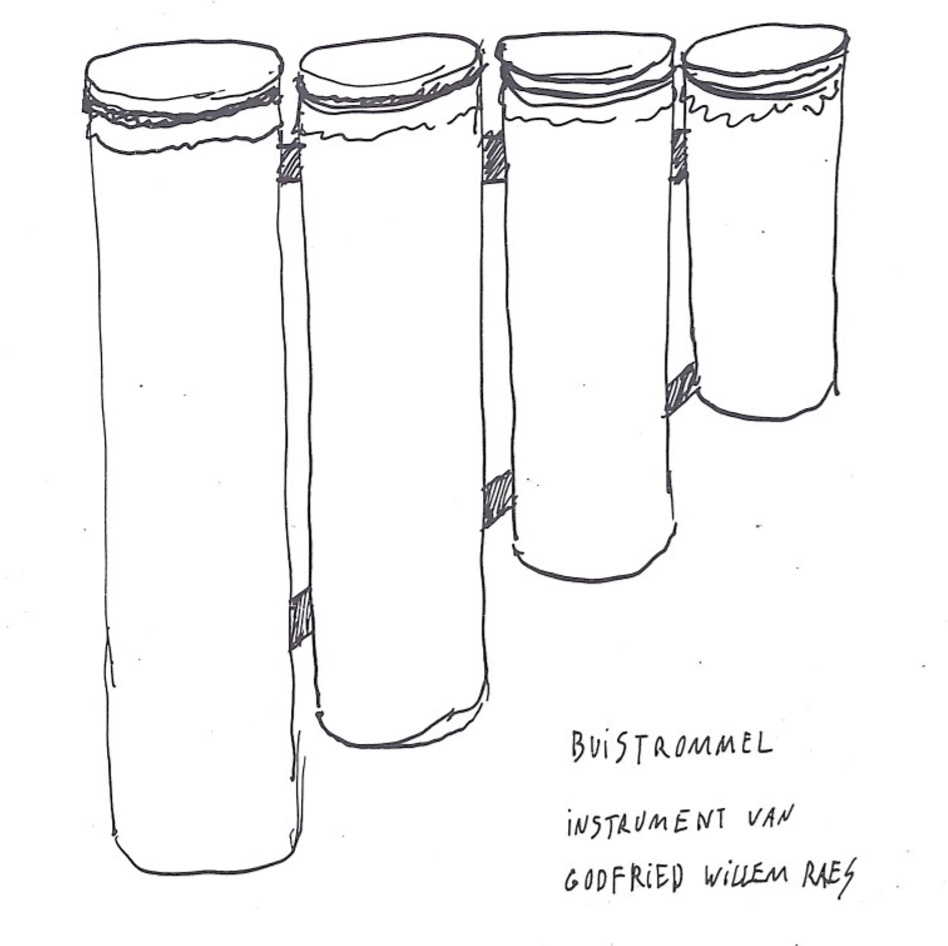 BUiSTROMMEL
iNSTRUMENT VAN
GODFRiED WiLLEM RAES